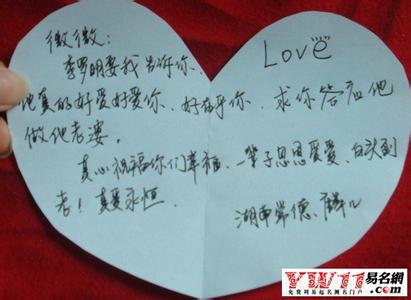 微微：
李罗明要我告诉你，
他真的好爱好爱你、好在乎你、求你答应他
做他老婆。
真心祝福你们幸福、一辈子恩恩爱爱、白头到
老！真爱永恒。
Love
湖南常德、
YW11易名網
免费易起名测名门户
.com